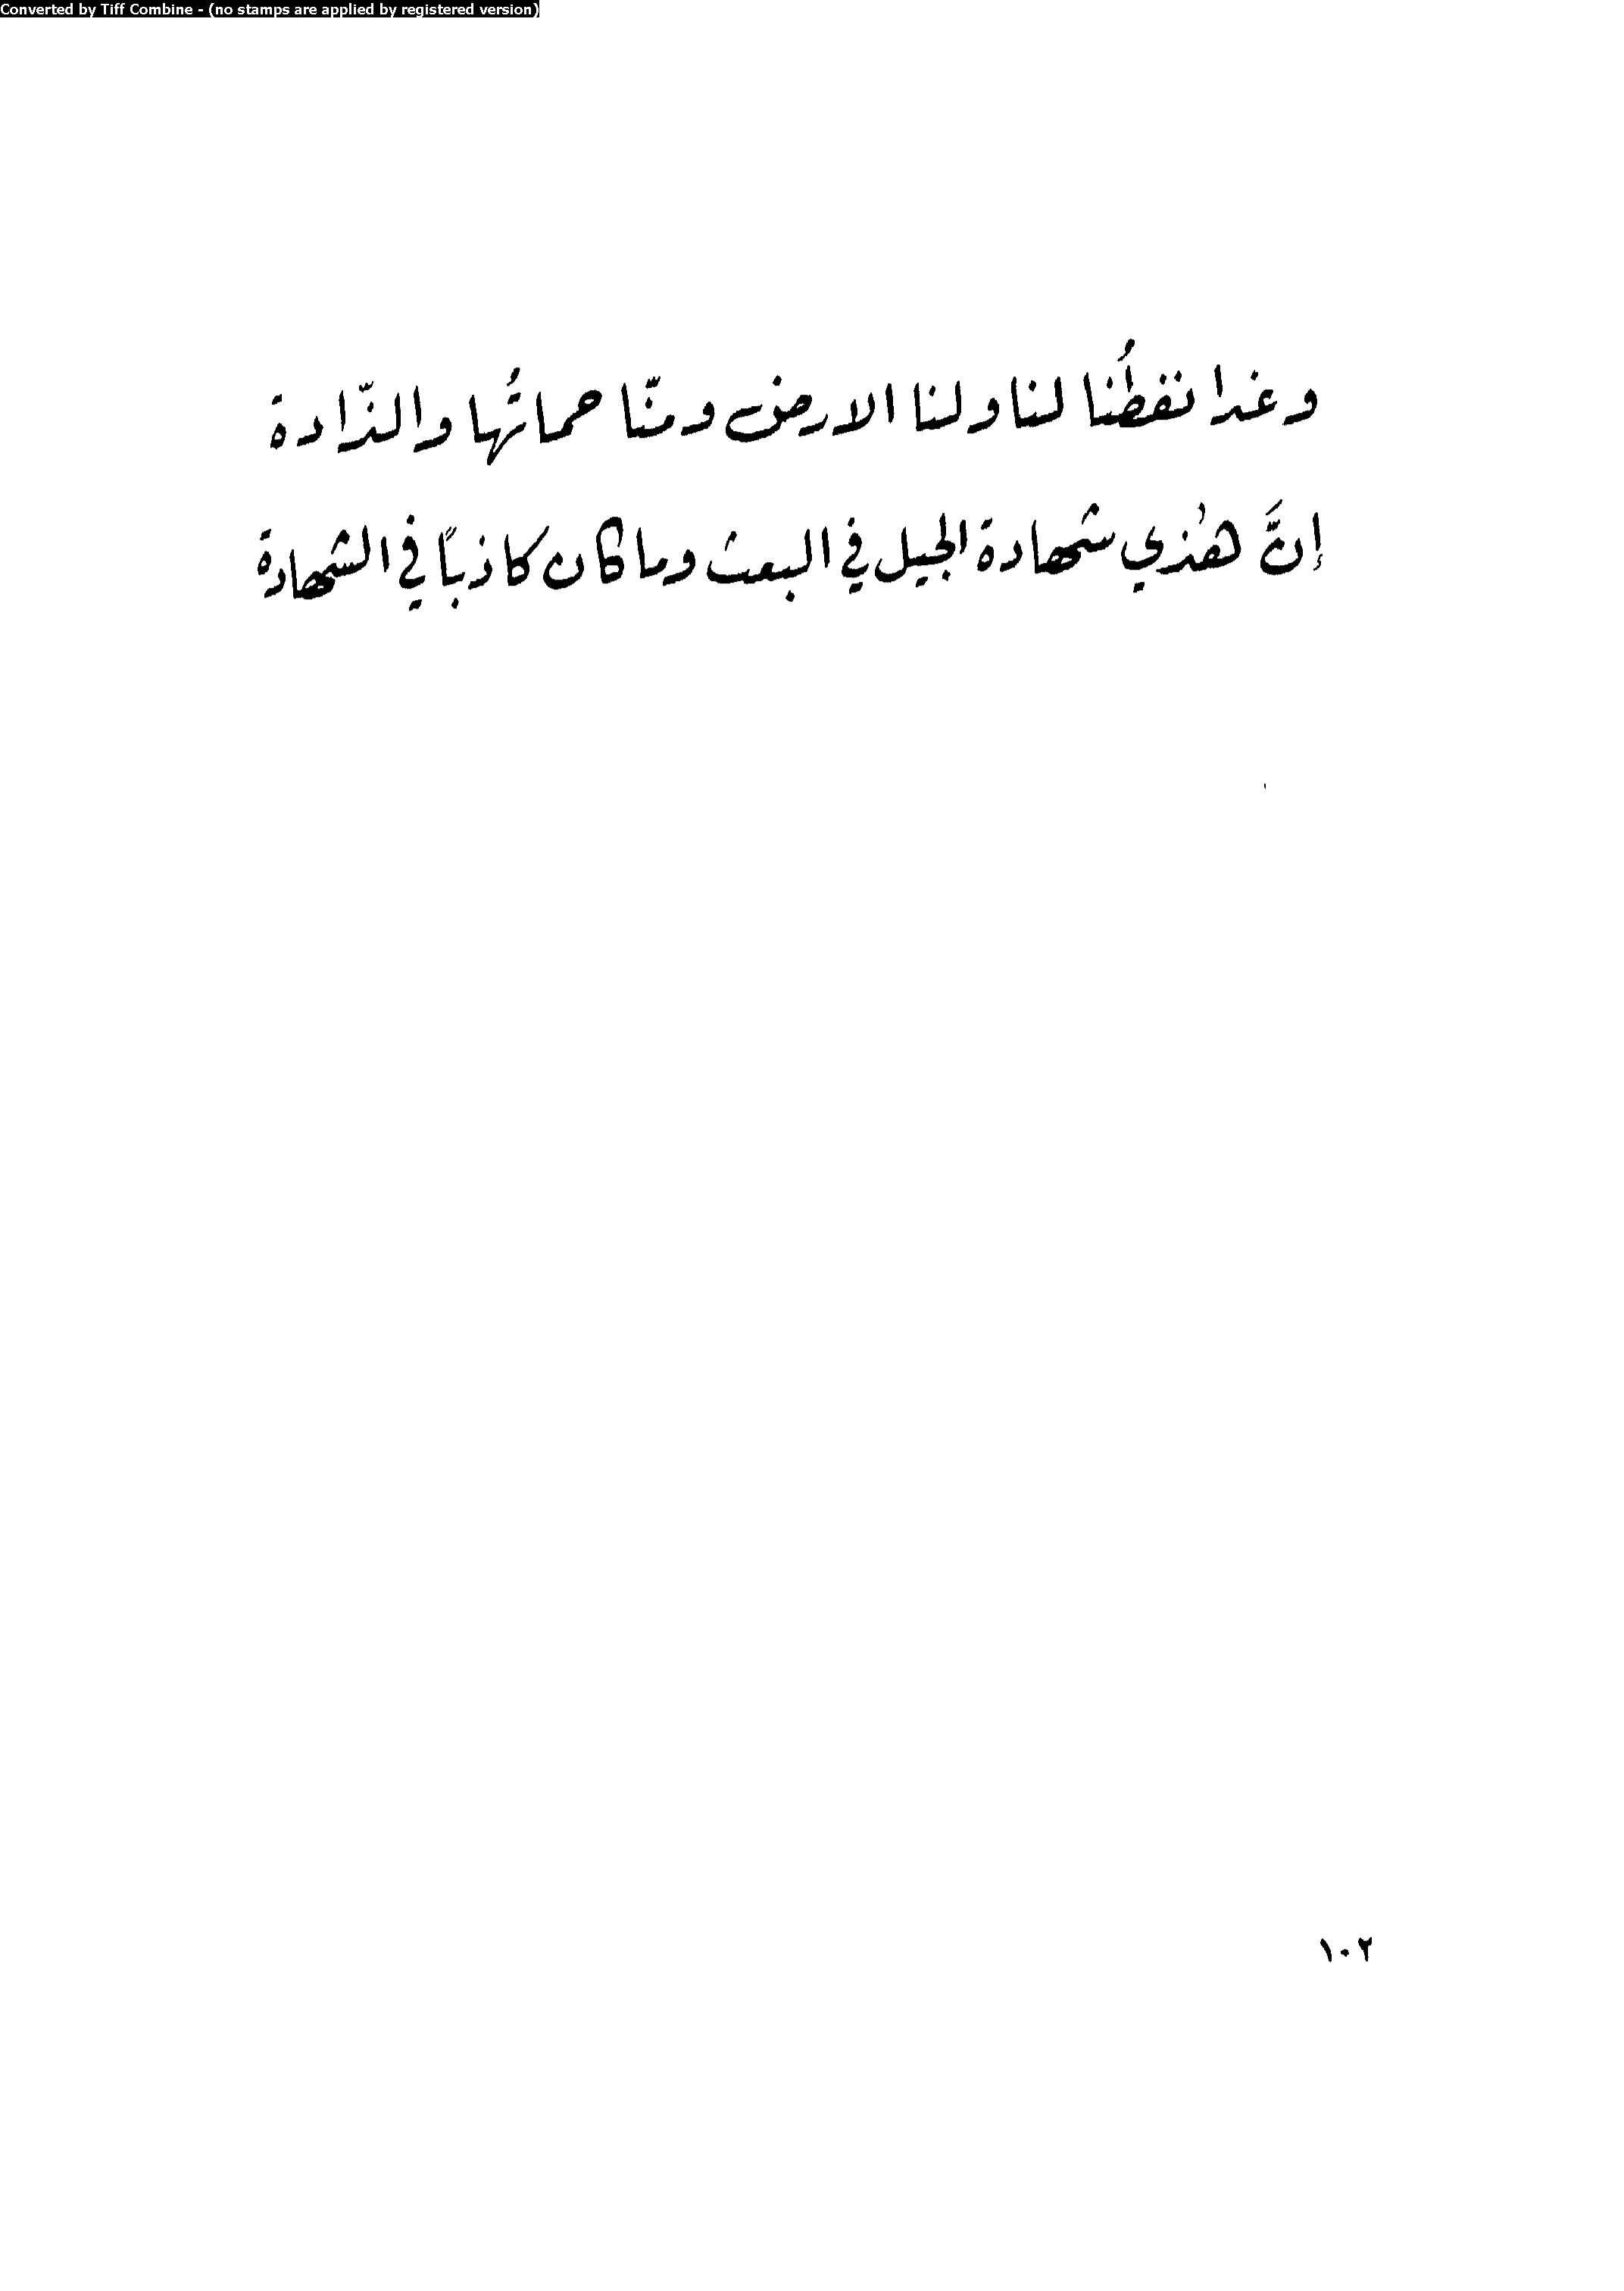 Converted by Tiff Combine - (no stamps are applied by registered version)
وغدا نفطُنا لنا ولنا الارض ومنّا حماتُها والذّادة
إنَّ هٰذي شهادة الجيل في البعث وما كان كاذباً في الشهادة
١٠٢